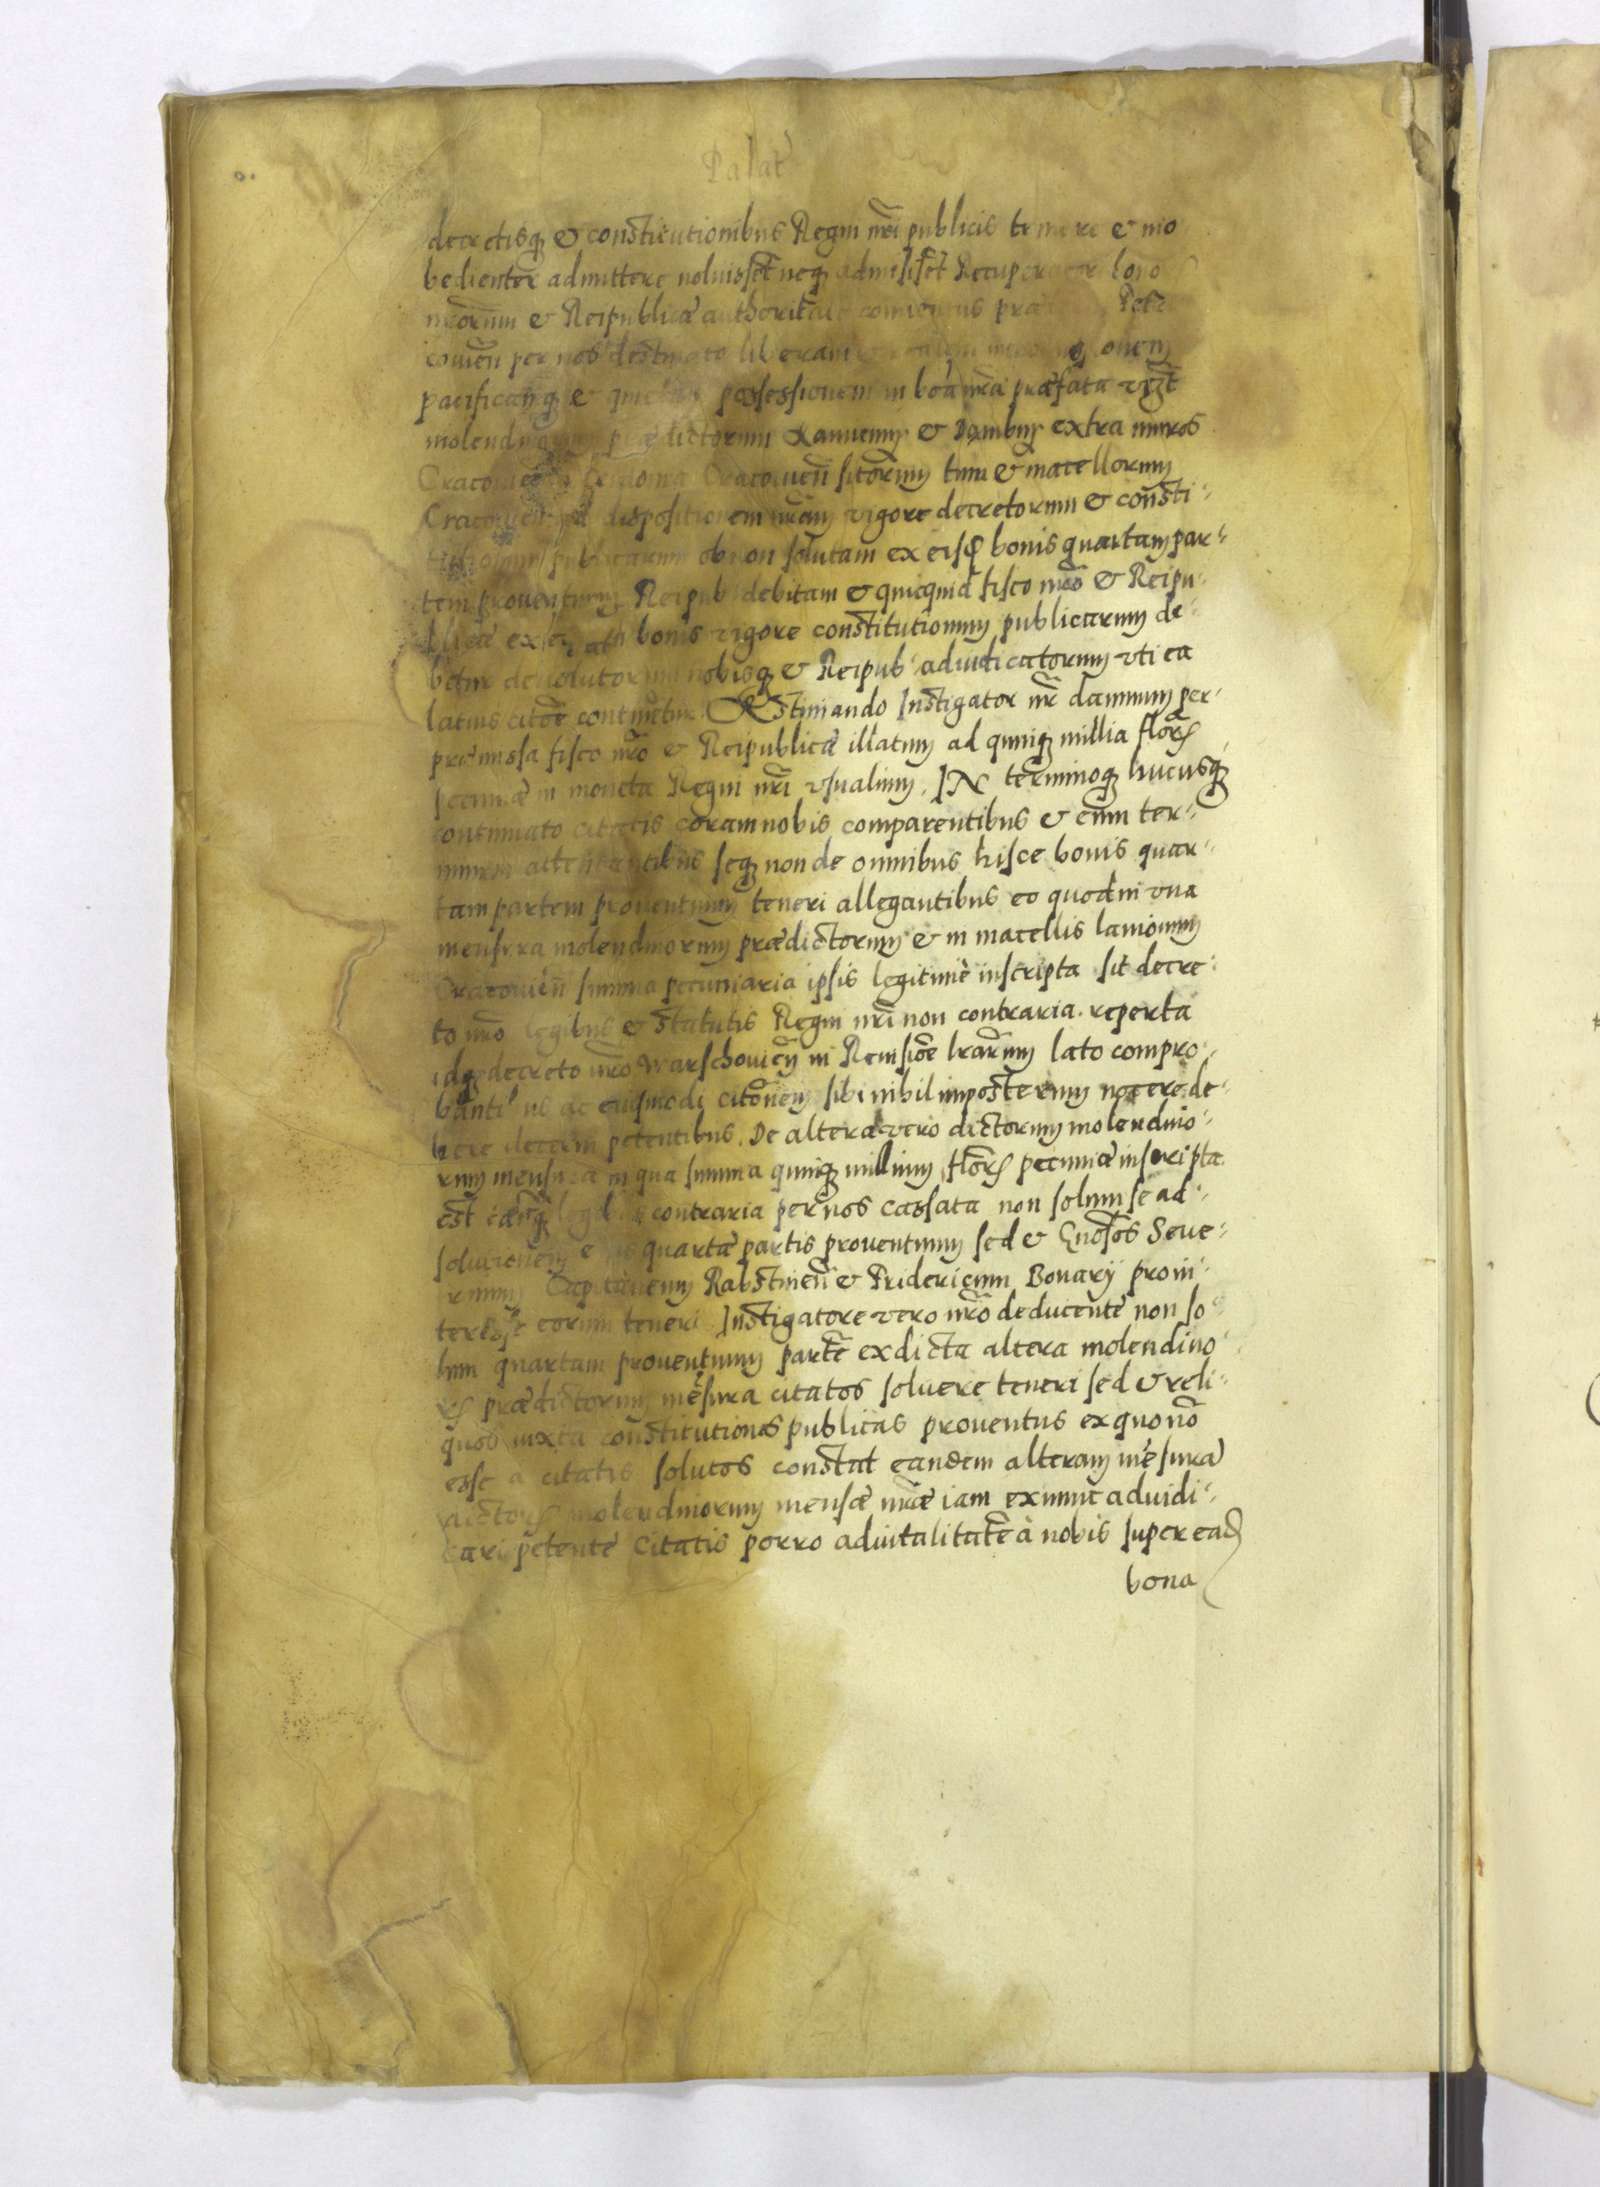 Palat
decretisq̃ & constitutionibus Regni nr̃i publicis temere & ino
bedienter admittere noluisset neq̃ admisisset Recuperator bono
nr̃orum & Reipublicæ authoritate præ
per nos destinato liberam
pacificamq̃ & quietam possessionem in bona nr̃a præfata vizt
molendinorum prædictorum & extra muros
Cracovien̄ sitorum tum & macellorum
Cracovien̄ dispositionem nr̃am vigore decretorum & consti-
tutionum publicarum ob non solutam ex eisd bonis quartam par-
tem proventuum Reipub debitam & quicquid fisco nr̃o & Reipu-
blicæ ex bonis vigore constitutionum publicarum de-
betur devolutorum nobisq̃ & Reipub adiudicatorum vti ea
latius citõe continetur Æstimando Instigator nr̃ damnum per
præmissa fisco nr̃o & Reipublicæ illatum ad quinq̃ millia floR
pecuniæ in moneta Regni nr̃i vsualium. IN terminoq̃ hucusq̃
continuato citatis coram nobis comparentibus & eum ter-
minum attentantibus seq̃ non de omnibus hisce bonis quar-
tam partem proventuum teneri allegantibus eo quod in vna
mensura molendinorum prædictorum & in macellis lanionum
Cracovien̄ summa pecuniaria ipsis legitimè inscripta sit decre-
to nr̃o legibus & statutis Regni nr̃i non contraria reperta
idq̃ decreto nr̃o Warschovien̄ in Reuisiõe lr̃arum lato compro-
bantibus ac eiusmodi citõnem sibi nihil imposterum nocere de-
bere decerni petentibus. De altera vero dictorum molendino-
rum mensura in qua summa quinq̃ millium floR pecuniæ inscripta
est tanq̃ legibus contraria per nos cassata non solum se ad
solutionem quartæ partis proventuum sed & Gnosos Seve-
rinum Capitaneum Rabstinen̄ & Fridericum Bonarÿ pro in-
teresse eorum teneri Instigatore vero nr̃o deducente non so-
lum quartam proventuum partẽ ex dicta altera molendino
R prædictorum mẽsura citatos soluere teneri sed & reli-
quos iuxta constitutiones publicas proventus ex quo nõ
esse a citatis solutos constat eandem alteram mẽsurã
dictoR molendinorum mensæ nr̃æ iam ex nunc adiudi-
cari petente Citatis porro aduitalitatẽ à nobis super ead
bona